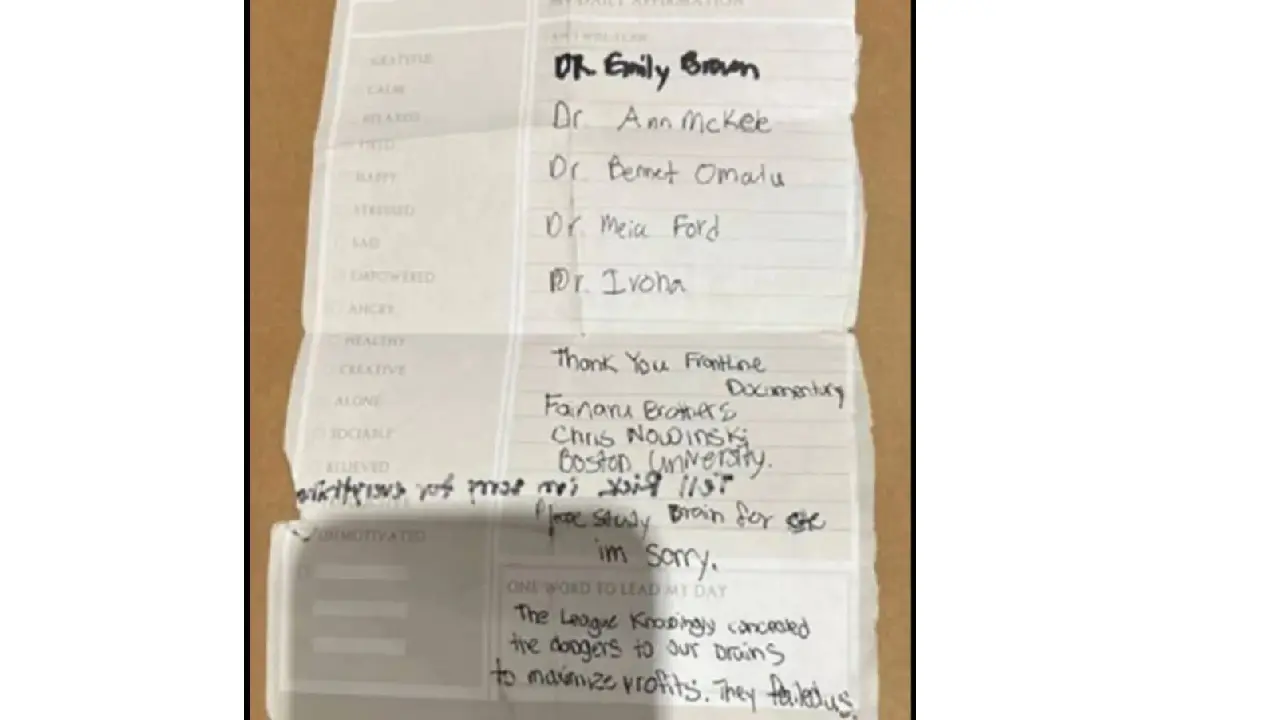 MY DAILY AFFIRMATION
GRATEFUL
CALM
RELAXED
TIRED
HAPPY
STRESSED
SAD
EMPOWERED
ANGRY
HEALTHY
CREATIVE
ALONE
SOCIABLE
RELIEVED
UNMOTIVATED
DR. Emily Brown
Dr. Ann McKee
Dr. Bennet Omalu
Dr. Meia Ford
Dr. Ivona
Thank You Frontline
Documentary
Fainaru Brothers
Chris Nowinski
Boston University.
Tell Rick I'm sorry for everything
Please study Brain for
im sorry.
ONE WORD TO LEAD MY DAY
The League Knowingly concealed
the dangers to our brains
to maximize profits. They failed us.